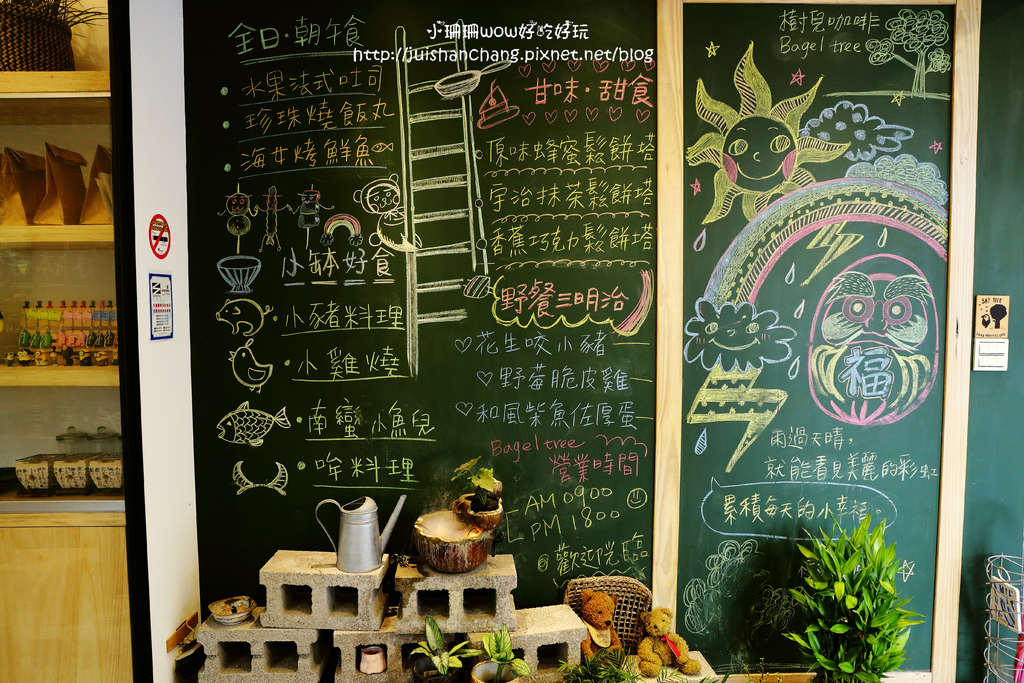 小珊珊wow好吃好玩
http://juishanchang.pixnet.net/blog
全日·朝午食
水果法式吐司
珍珠燒飯丸
海女烤鮮魚
小缽好食
小豬料理
小雞燒
南蠻小魚兒
哞料理
甘味·甜食
原味蜂蜜鬆餅塔
宇治抹茶鬆餅塔
香蕉巧克力鬆餅塔
野餐三明治
花生咬小豬
野莓脆皮雞
和風柴魚佐厚蛋
Bagel tree
營業時間
AM 0900
PM 1800
@歡迎光臨
樹兒咖啡
Bagel tree
福
雨過天晴,
就能看見美麗的彩虹
累積每天的小幸福。